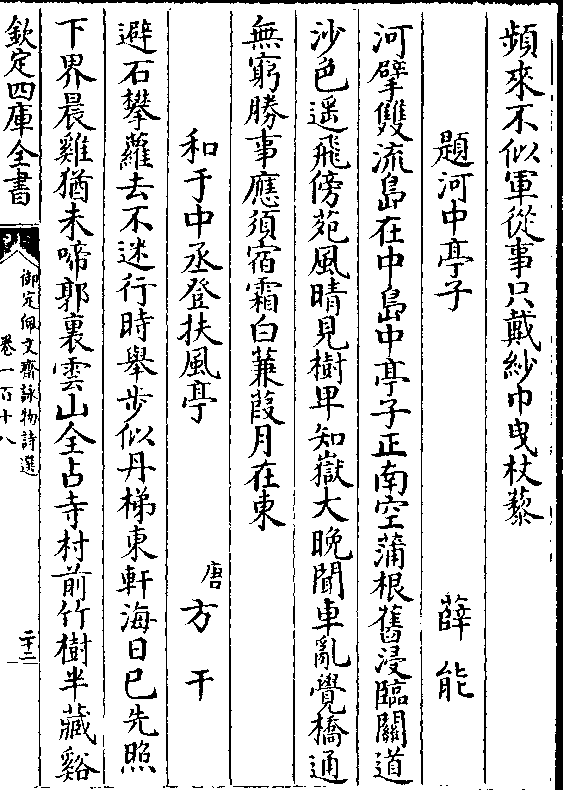 頻來不似軍從事只戴紗巾曳杖藜
題河中亭子 薛能
河擘雙流島在中島中亭子正南空蒲根舊浸臨關道
沙色遥飛傍苑風晴見樹卑知嶽大晚聞車亂覺橋通
無窮勝事應須宿霜白蒹葭月在東
和于中丞登扶風亭 唐方干
避石攀蘿去不迷行時舉步似丹梯東軒海日已先照
下界晨雞猶未啼郭裏雲山全占寺村前竹樹半藏谿
欽定四庫全書
御定佩文齋詠物詩選
卷一百十八
二十三